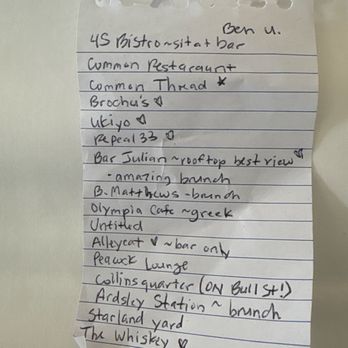 Ben U.
45 Bistro~sit at bar
Common Restaraunt
Common Thread *
Brochu's ♡
Ukiyo ♡
Repeal 33 ♡
Bar Julian ~rooftop best view ♡
- amazing brunch
B. Matthews -brunch
Olympia Cafe ~greek
Untitled
Alleycat ♡ ~bar only
Peacock Lounge
Collins quarter (ON Bull St!)
Ardsley Station ~ brunch
Starland yard
The Whiskey ♡